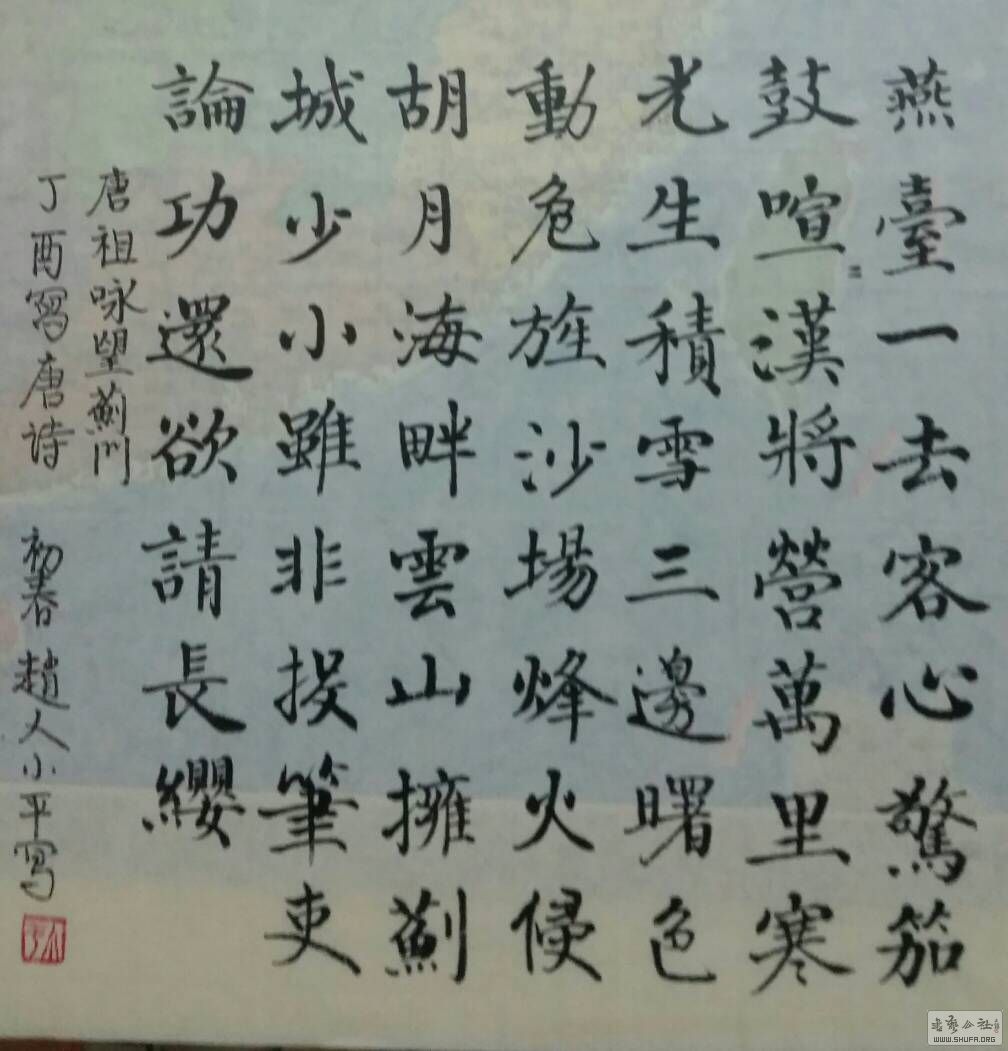 燕臺一去客心驚笳
鼓喧〻漢將營萬里寒
光生積雪三邊曙色
動危旌沙場烽火侵
胡月海畔雲山擁薊
城少小雖非投筆吏
論功還欲請長纓
唐祖咏望薊門
丁酉寫唐詩 初春 趙人小平寫
WWW.SHUFA.ORG